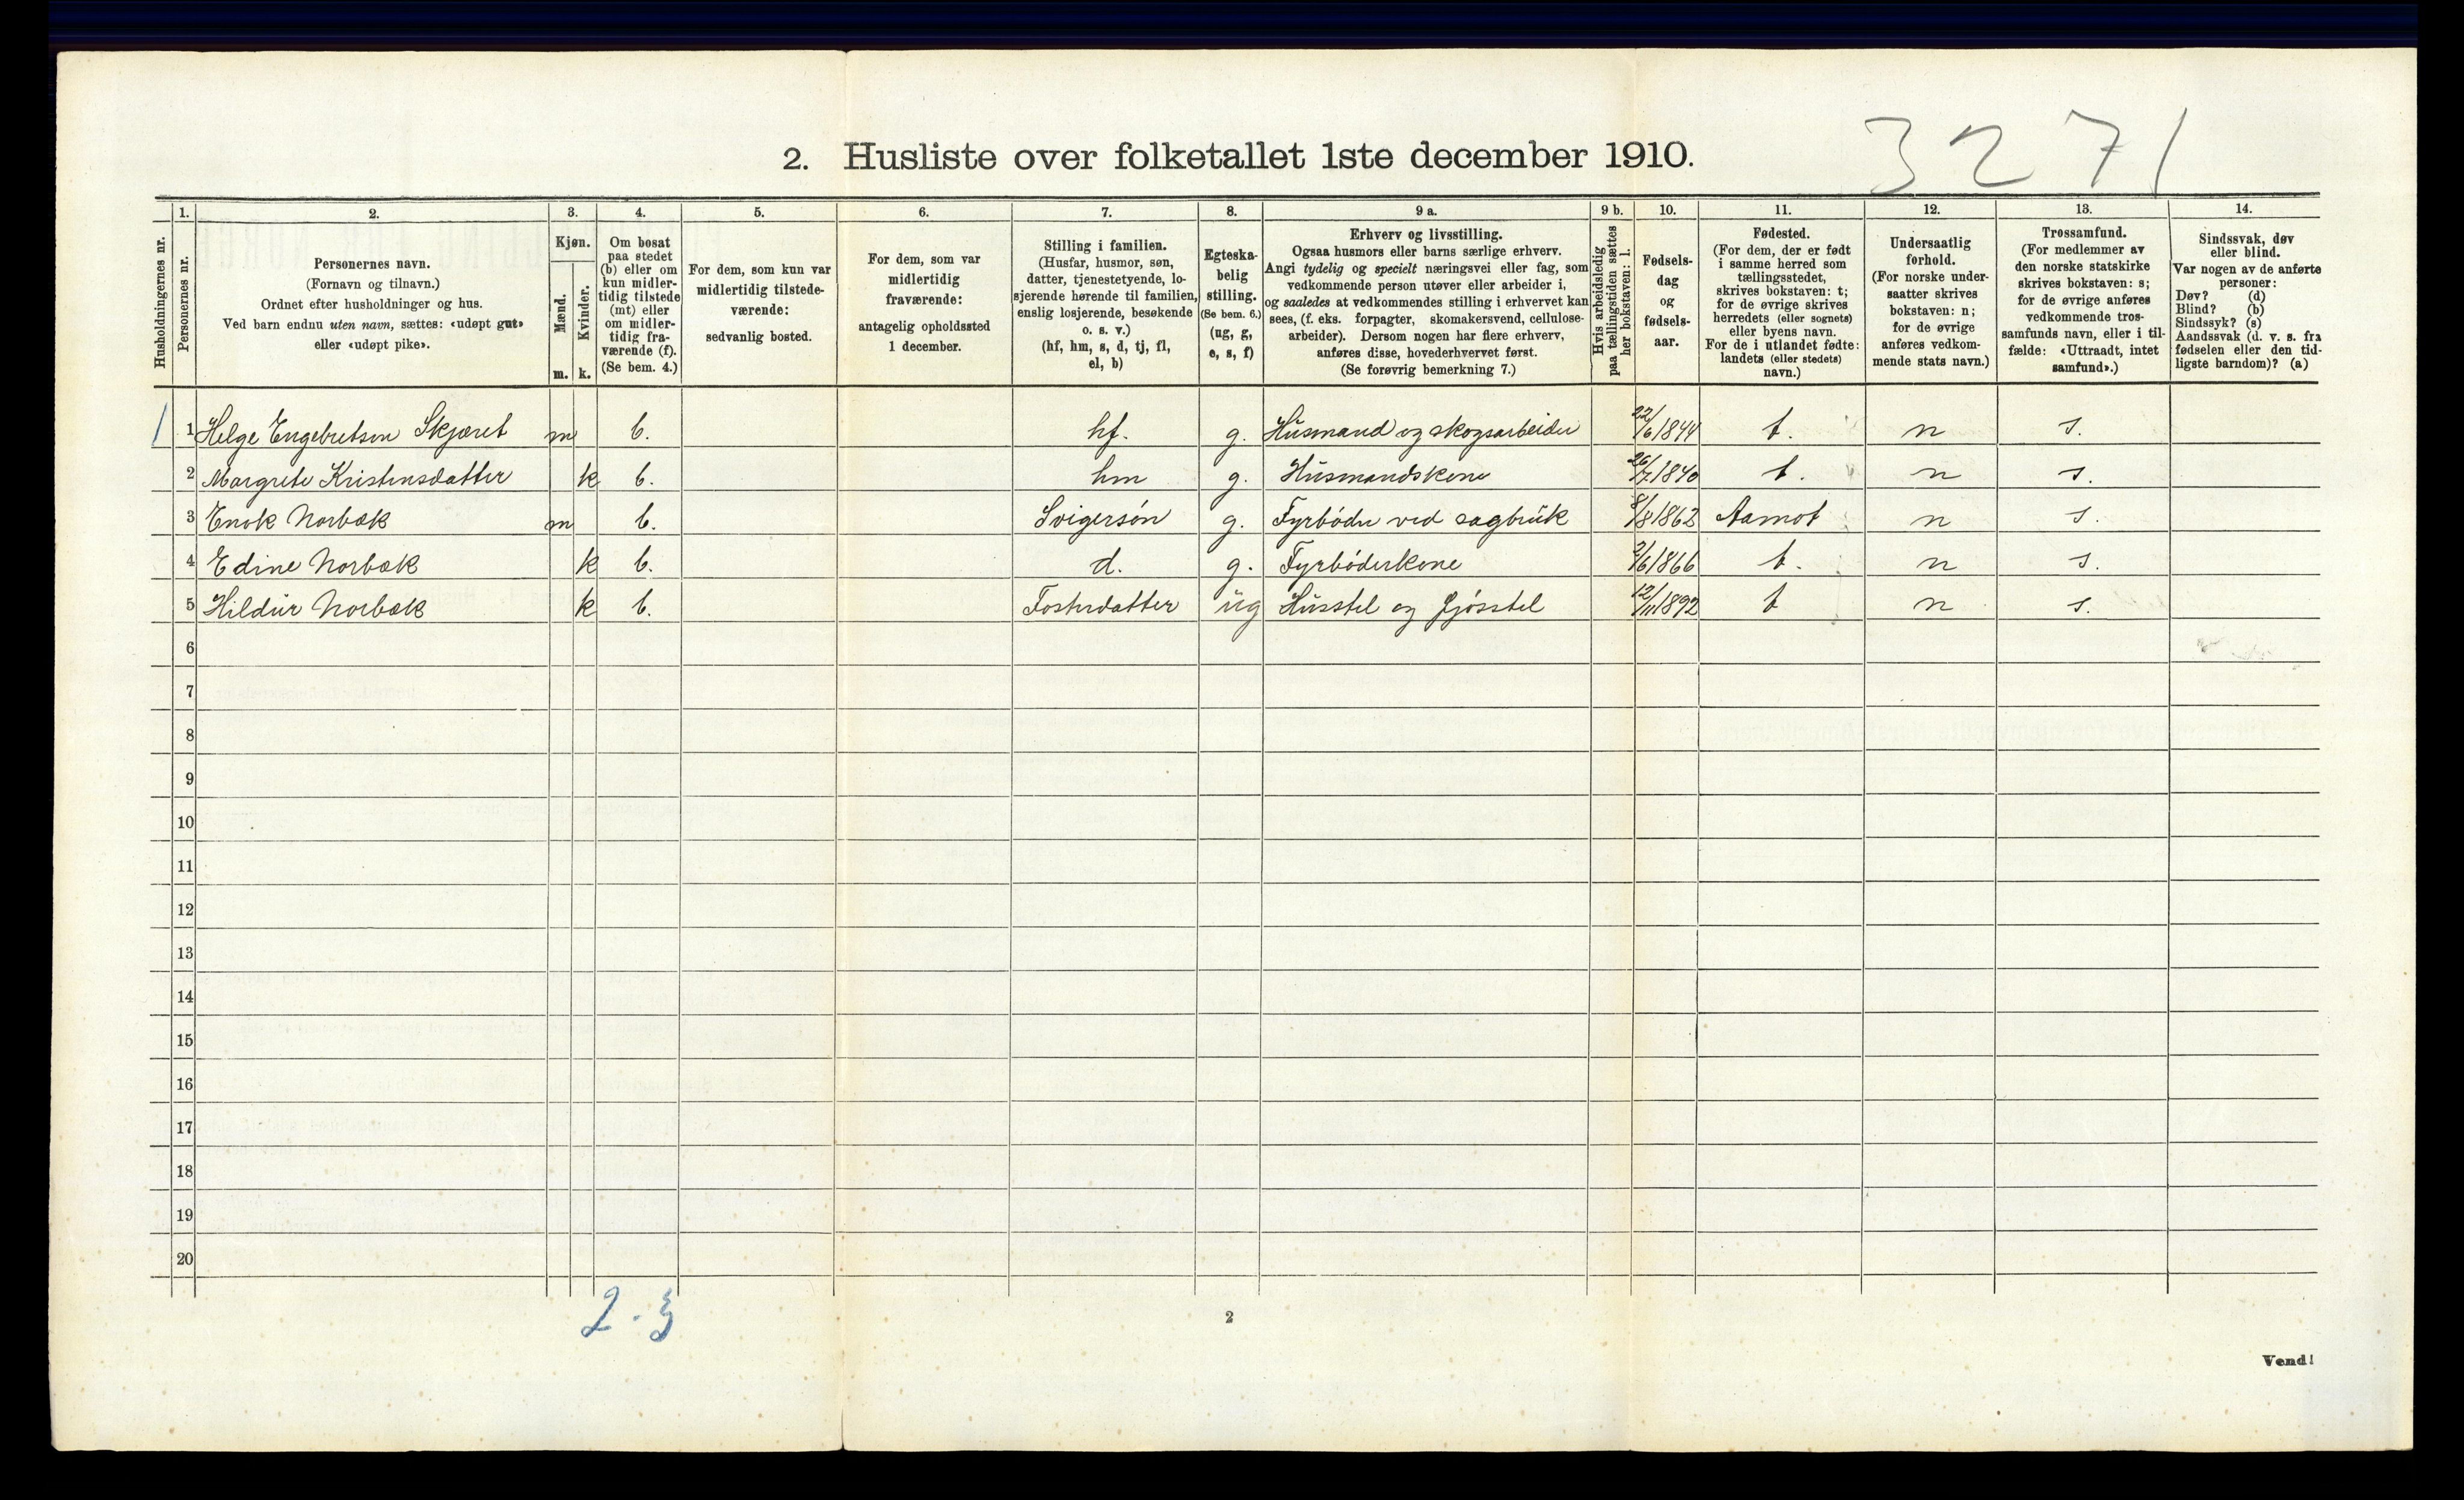 3271
2. Husliste over folketallet 1ste december 1910.
1. 2. 3. 4. 5. 6. 7. 8. 9 a. 9 b. 10. 11. 12. 13. 14.
Husholdningernes nr.
Personernes nr.
Personernes navn.
(Fornavn og tilnavn.)
Ordnet efter husholdninger og hus.
Ved barn endnu uten navn, sættes: «udøpt gut»
eller «udøpt pike».
Kjøn.
Mænd.
Kvinder.
m. k.
Om bosat
paa stedet
(b) eller om
kun midler-
tidig tilstede
(mt) eller
om midler-
tidig fra-
værende (f).
(Se bem. 4.)
For dem, som kun var
midlertidig tilstede-
værende:
sedvanlig bosted.
For dem, som var
midlertidig
fraværende:
antagelig opholdssted
1 december.
Stilling i familien.
(Husfar, husmor, søn,
datter, tjenestetyende, lo-
sjerende hørende til familien,
enslig losjerende, besøkende
o. s. v.)
(hf, hm, s, d, tj, fl,
el, b)
Egteska-
belig
stilling.
(Se bem. 6.)
(ug, g,
e, s, f)
Erhverv og livsstilling.
Ogsaa husmors eller barns særlige erhverv.
Angi tydelig og specielt næringsvei eller fag, som
vedkommende person utøver eller arbeider i,
og saaledes at vedkommendes stilling i erhvervet kan
sees, (f. eks. forpagter, skomakersvend, cellulose-
arbeider). Dersom nogen har flere erhverv,
anføres disse, hovederhvervet først.
(Se forøvrig bemerkning 7.)
Hvis arbeidsledig
paa tællingstiden sættes
her bokstaven: l.
Fødsels-
dag
og
fødsels-
aar.
Fødested.
(For dem, der er født
i samme herred som
tællingsstedet,
skrives bokstaven: t;
for de øvrige skrives
herredets (eller sognets)
eller byens navn.
For de i utlandet fødte:
landets (eller stedets)
navn.)
Undersaatlig
forhold.
(For norske under-
saatter skrives
bokstaven: n;
for de øvrige
anføres vedkom-
mende stats navn.)
Trossamfund.
(For medlemmer av
den norske statskirke
skrives bokstaven: s;
for de øvrige anføres
vedkommende tros-
samfunds navn, eller i til-
fælde: «Uttraadt, intet
samfund».)
Sindssvak, døv
eller blind.
Var nogen av de anførte
personer:
Døv? (d)
Blind? (b)
Sindssyk? (s)
Aandssvak (d. v. s. fra
fødselen eller den tid-
ligste barndom)? (a)
1 1 Helge Engebretson Skjæret m b. hf. g. Husmand og skogsarbeider 22/6 1844 t. n s.
2 Margrete Kristensdatter k b. hm g. Husmandskone 26/7 1840 t. n s.
3 Enok Norbæk m b. Svigersön g. Fyrböder ved sagbruk 8/8 1862 Aamot n s.
4 Edine Norbæk k b. d. g. Fyrböderkone 2/6 1866 t. n s.
5 Hildur Norbæk k b. Fosterdatter ug Husstel og fjösstel 12/11 1892 t n s.
6
7
8
9
10
11
12
13
14
15
16
17
18
19
20
2 - 3
2
Vend!